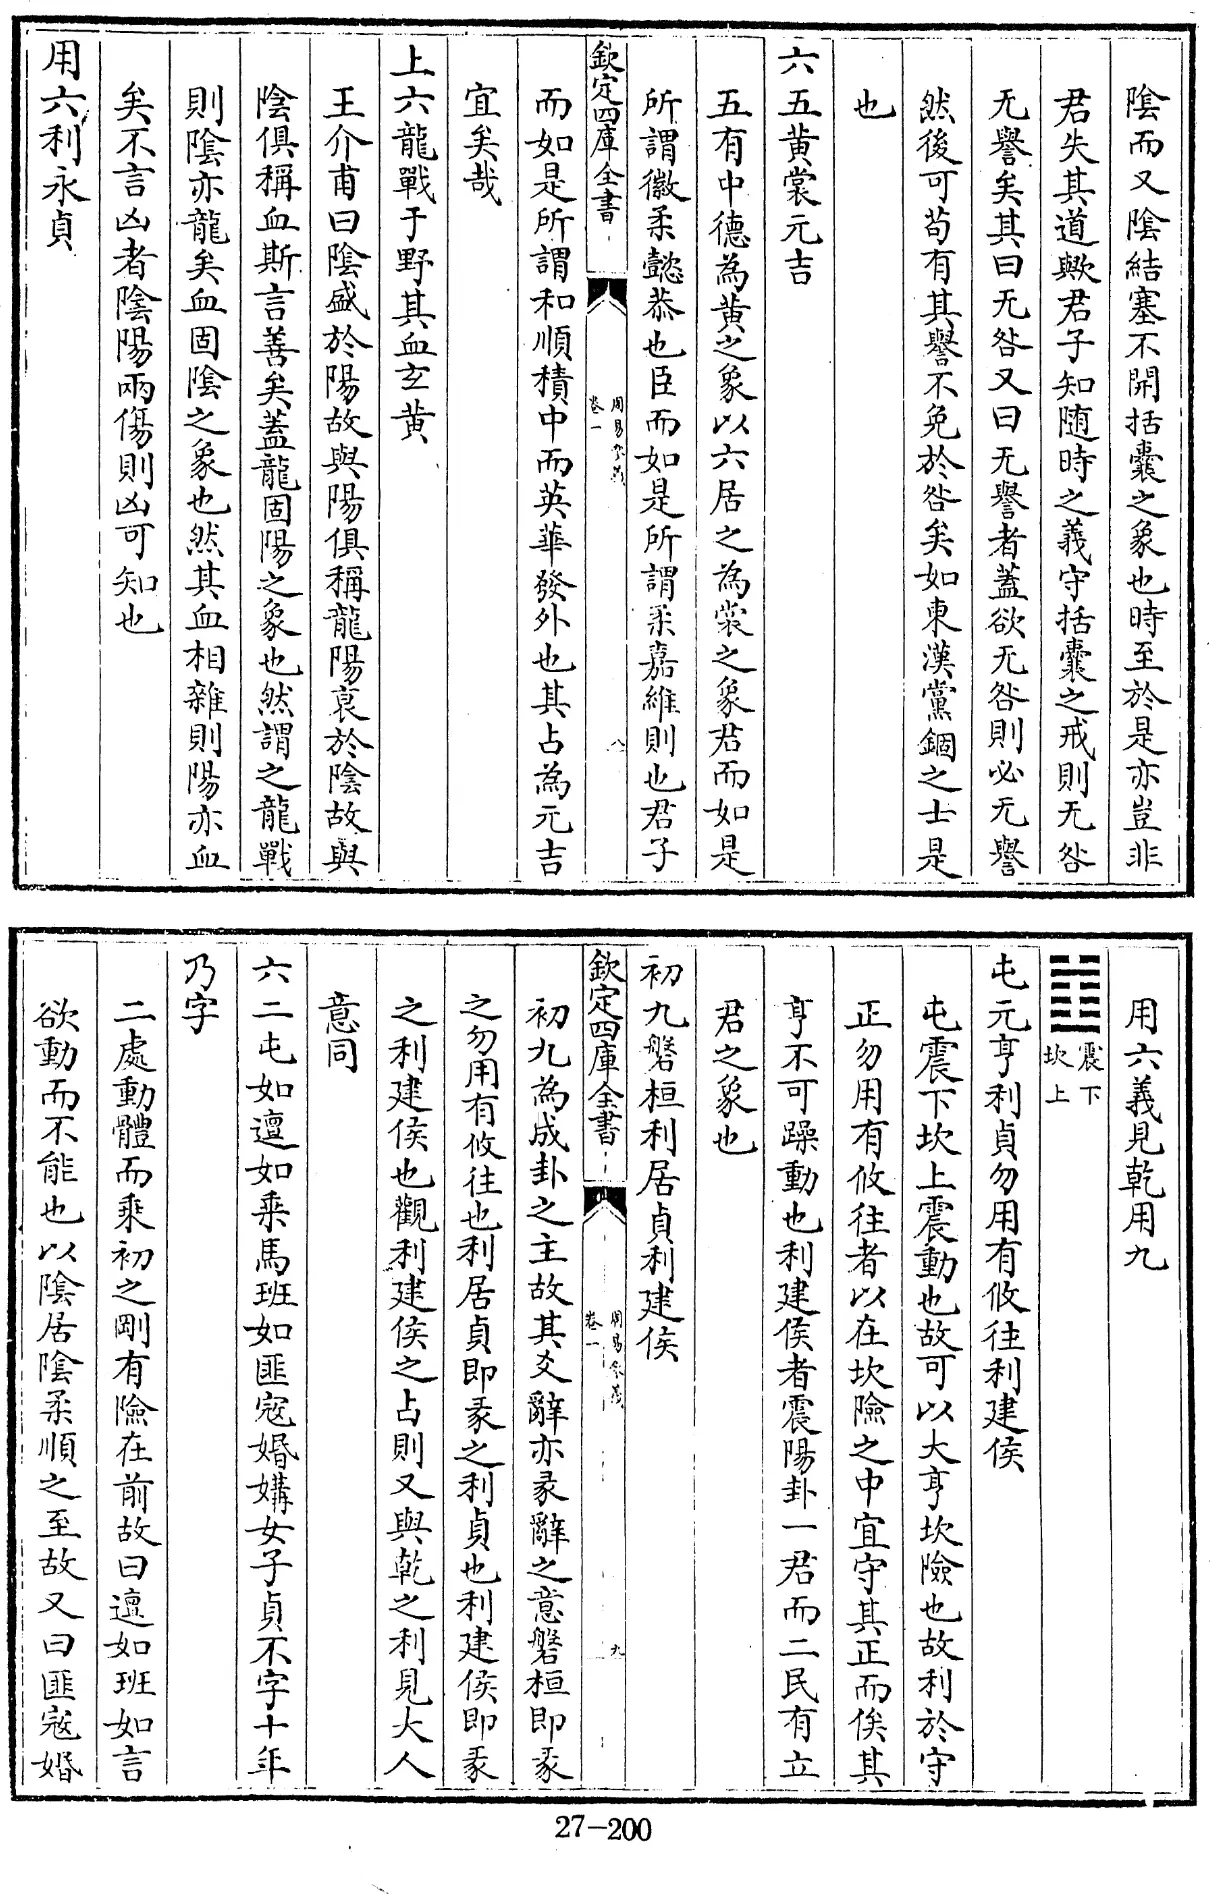 陰而又陰結塞不開括囊之象也時至於是亦豈非
君失其道歟君子知随時之義守括囊之戒則无咎
无譽矣其曰无咎又曰无譽者蓋欲无咎則必无譽
然後可苟有其譽不免於咎矣如東漢黨錮之士是
也
六五黄裳元吉
五有中德為黄之象以六居之為裳之象君而如是
所謂徽柔懿恭也臣而如是所謂柔嘉維則也君子
欽定四庫全書
周易參義
卷一
八
而如是所謂和順積中而英華發外也其占為元吉
宜矣哉
上六龍戰于野其血玄黄
王介甫曰陰盛於陽故與陽俱稱龍陽衰於陰故與
陰俱稱血斯言善矣蓋龍固陽之象也然謂之龍戰
則陰亦龍矣血固陰之象也然其血相雜則陽亦血
矣不言凶者陰陽兩傷則凶可知也
用六利永貞
用六義見乾用九
䷂
震下
坎上
屯元亨利貞勿用有攸往利建侯
屯震下坎上震動也故可以大亨坎險也故利於守
正勿用有攸往者以在坎險之中宜守其正而俟其
亨不可躁動也利建侯者震陽卦一君而二民有立
君之象也
初九磐桓利居貞利建侯
欽定四庫全書
周易參義
卷一
九
初九為成卦之主故其爻辭亦彖辭之意磐桓即彖
之勿用有攸往也利居貞即彖之利貞也利建侯即彖
之利建侯也觀利建侯之占則又與乾之利見大人
意同
六二屯如邅如乘馬班如匪寇婚媾女子貞不字十年
乃字
二處動體而乘初之剛有險在前故曰邅如班如言
欲動而不能也以陰居陰柔順之至故又曰匪寇婚
27-200